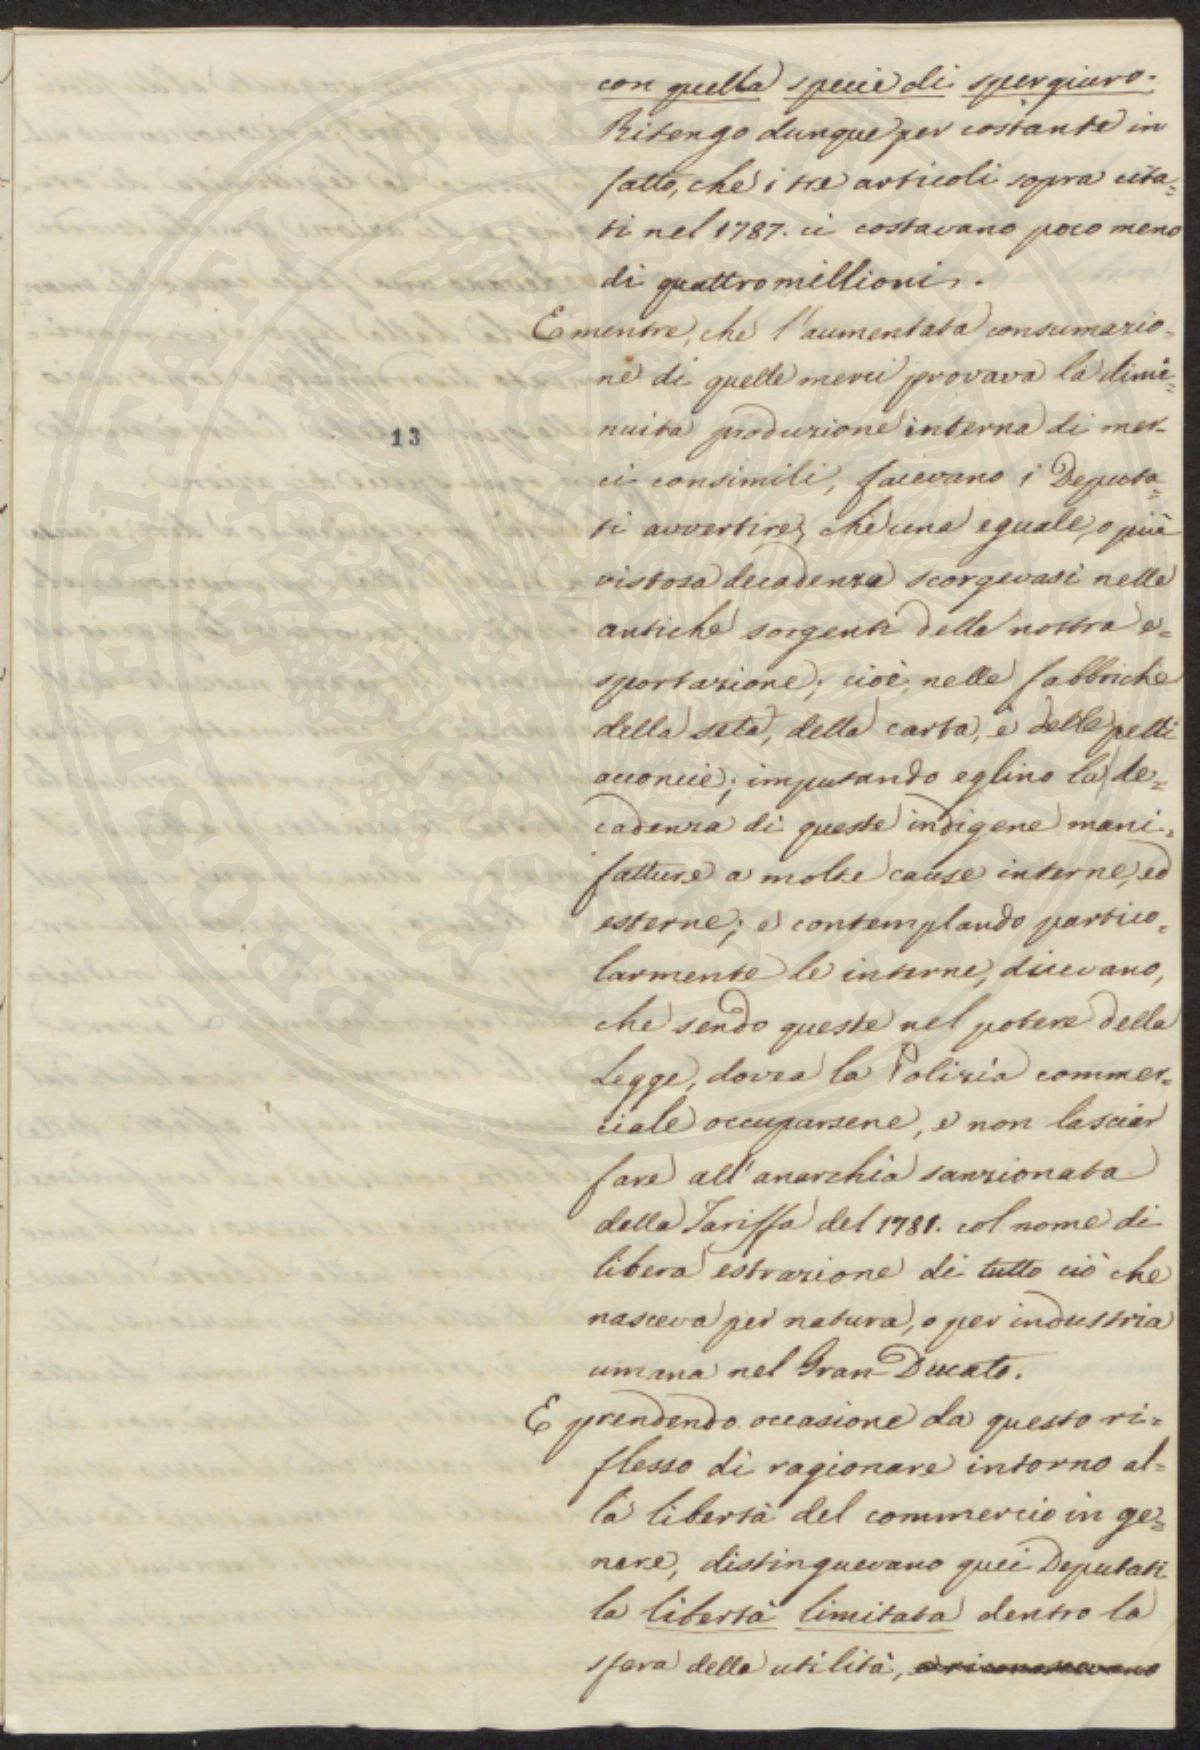 con quella specie di spergiuro.
Ritengo dunque per costante in
fatto, che i tre articoli sopra cita=
ti nel 1787. ci costavano poco meno
di quattro millioni.
E mentre, che l'aumentata consumazio=
ne di quelle merci provava la dimi=
nuita produzione interna di mer=
13
ci consimili, facevano i Deputa=
ti avvertire, che una eguale, o più
vistosa decadenza scorgevasi nelle
antiche sorgenti della nostra e=
sportazione; cioè, nelle fabbriche
della seta, della carta, e delle pelli
acconcie; imputando eglino la de=
cadenza di queste indigene mani=
fatture a molte cause interne, ed
esterne; e contemplando partico=
larmente le interne, dicevano,
che sendo queste nel potere della
Legge, dovea la Polizia commer=
ciale occuparsene, e non lasciar
fare all'anarchia sanzionata
dalla Tariffa del 1781. col nome di
libera estrazione di tutto ciò che
nasceva per natura, o per industria
umana nel Gran-Ducato.
E prendendo occasione da questo ri=
flesso di ragionare intorno al=
la libertà del commercio in ge=
nere, distinguevano quei Deputati
la libertà limitata dentro la
sfera della utilità, e riconoscevano
PROPRIETATI PUBLICAE